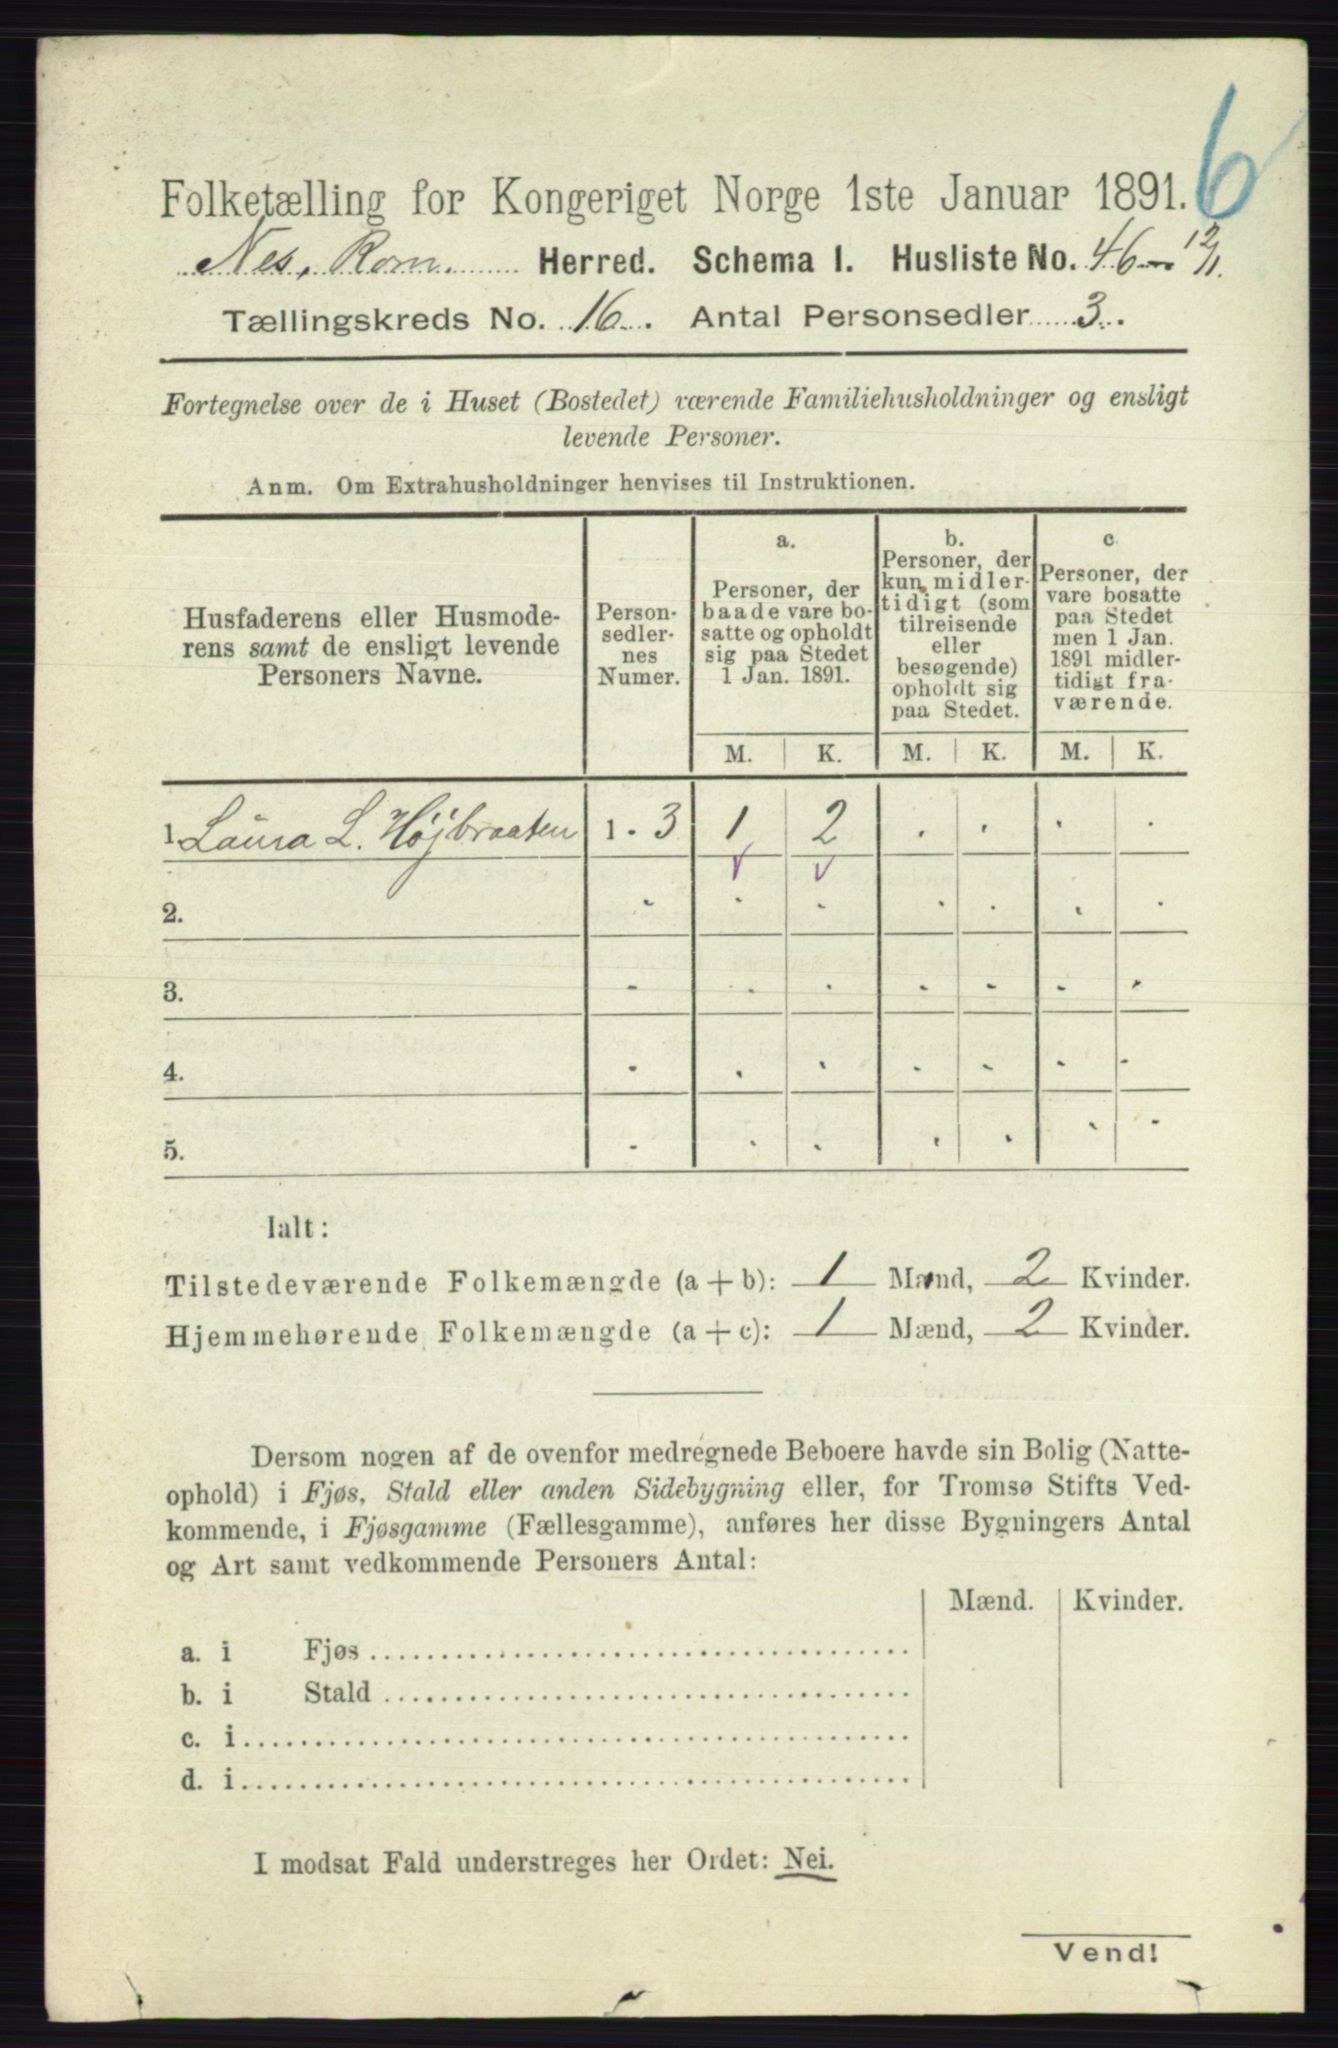 6
Folketælling for Kongeriget Norge 1ste Januar 1891.
Nes, Rom. Herred. Schema I. Husliste No. 46 - 12/1.
Tællingskreds No. 16. Antal Personsedler 3.
Fortegnelse over de i Huset (Bostedet) værende Familiehusholdninger og ensligt
levende Personer.
Anm. Om Extrahusholdninger henvises til Instruktionen.
Husfaderens eller Husmode-
rens samt de ensligt levende
Personers Navne.
Person-
sedler-
nes
Numer.
a.
Personer, der
baade vare bo-
satte og opholdt
sig paa Stedet
1 Jan. 1891.
b.
Personer, der
kun midler-
tidigt (som
tilreisende
eller
besøgende)
opholdt sig
paa Stedet.
c.
Personer, der
vare bosatte
paa Stedet
men 1 Jan.
1891 midler-
tidigt fra-
værende.
M. K. M. K. M. K.
1. Laura L. Højbraaten 1 - 3 1 2 . . . .
2. . . . . . . .
3. . . . . . . .
4. . . . . . . .
5. . . . . . . .
Ialt:
Tilstedeværende Folkemængde (a + b): 1 Mænd, 2 Kvinder.
Hjemmehørende Folkemængde (a + c): 1 Mænd, 2 Kvinder.
Dersom nogen af de ovenfor medregnede Beboere havde sin Bolig (Natte-
ophold) i Fjøs, Stald eller anden Sidebygning eller, for Tromsø Stifts Ved-
kommende, i Fjøsgamme (Fællesgamme), anføres her disse Bygningers Antal
og Art samt vedkommende Personers Antal:
Mænd. Kvinder.
a. i Fjøs
b. i Stald
c. i
d. i
I modsat Fald understreges her Ordet: Nei.
Vend!